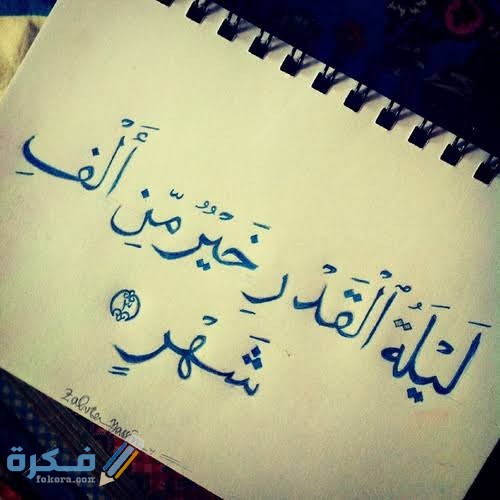 لَيْلَةُ ٱلْقَدْرِ خَيْرٌ مِّنْ أَلْفِ
شَهْرٍ
فكرة
fokera.com